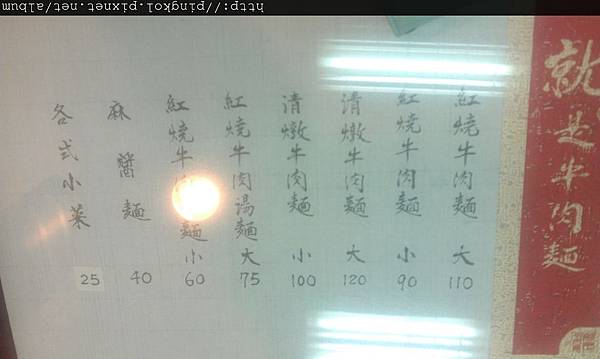 http://pingkol.pixnet.net/album
就是牛肉麵
紅燒牛肉麵 大 110
紅燒牛肉麵 小 90
清燉牛肉麵 大 120
清燉牛肉麵 小 100
紅燒牛肉湯麵 大 75
紅燒牛肉 麵 小 60
麻醬麵 40
各式小菜 25